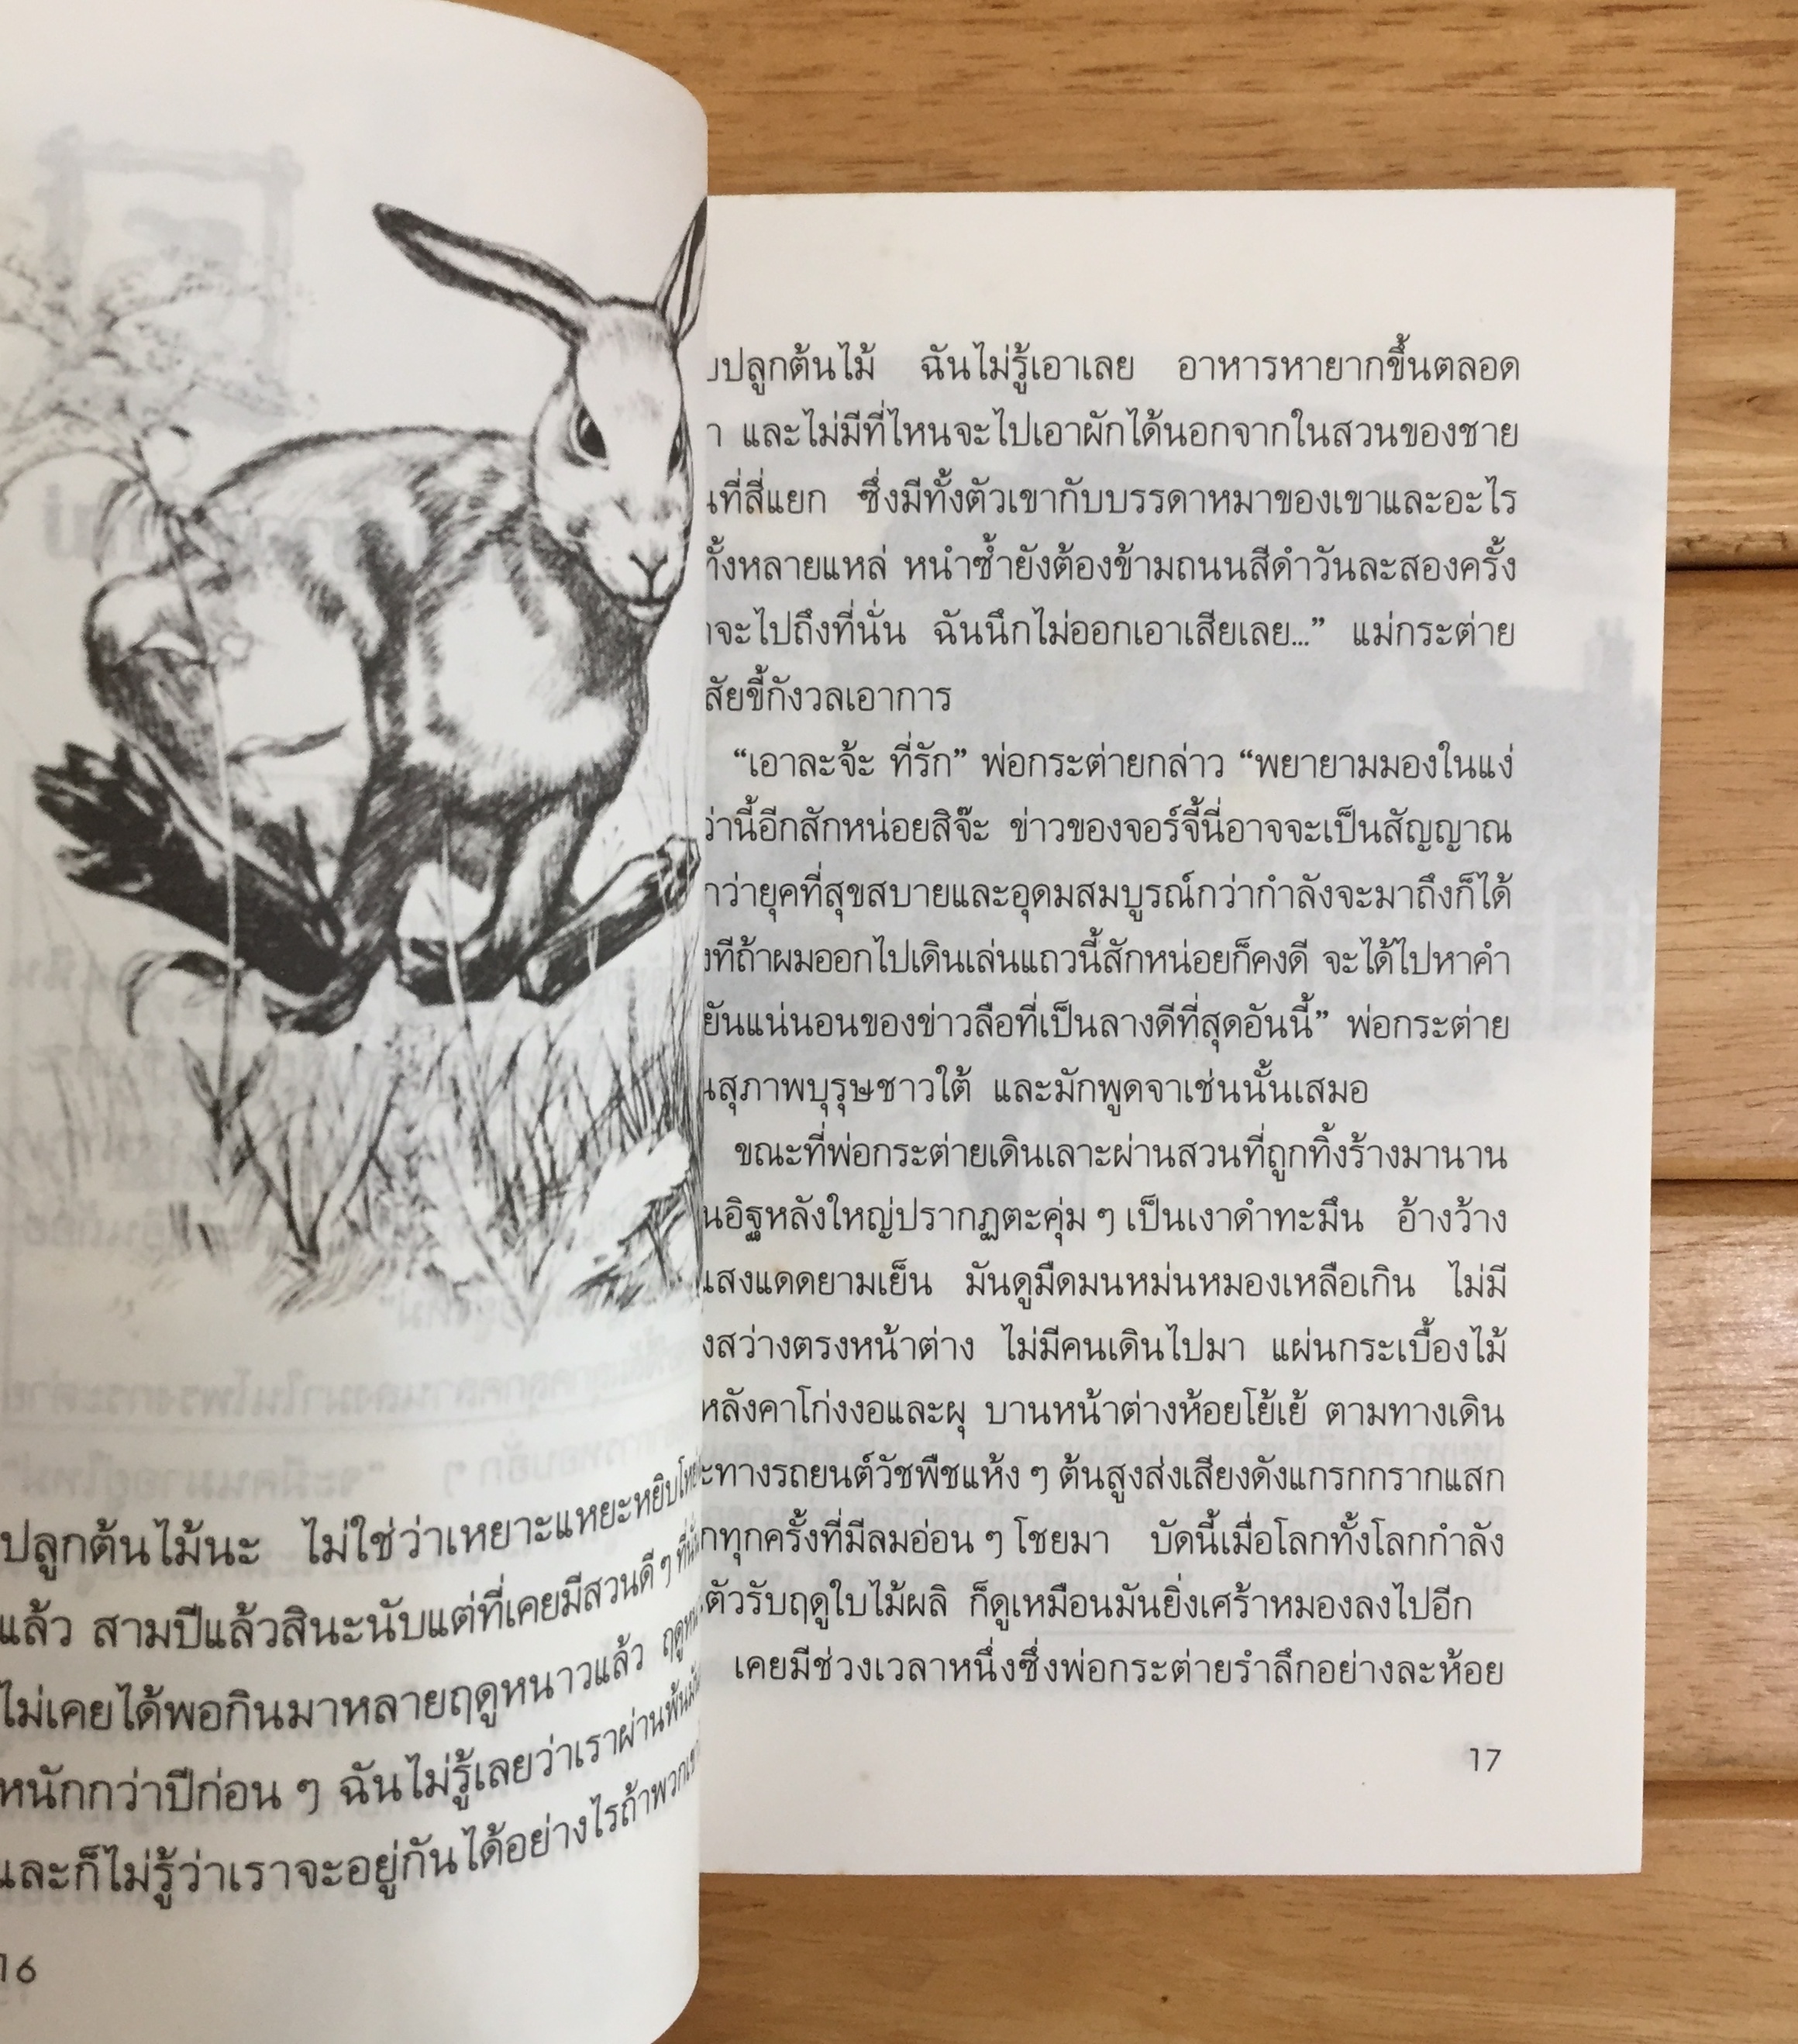 ปลูกต้นไม้นะ ไม่ใช่ว่าเหยาะแหยะหยิบโหย่ง
แล้ว สามปีแล้วสินะนับแต่ที่เคยมีสวนดีๆ ที่นี่
ไม่เคยได้พอกินมาหลายฤดูหนาวแล้ว
หนักกว่าปีก่อน ๆ ฉันไม่รู้เลยว่าเราผ่านพ้น
และก็ไม่รู้ว่าเราจะอยู่กันได้อย่างไรถ้าพวกเขา
16
ปลูกต้นไม้ ฉันไม่รู้เอาเลย อาหารหายากขึ้นตลอด
และไม่มีที่ไหนจะไปเอาผักได้นอกจากในสวนของชาย
ที่สี่แยก ซึ่งมีทั้งตัวเขากับบรรดาหมาของเขาและอะไร
ทั้งหลายแหล่ หนำซ้ำยังต้องข้ามถนนสีดำวันละสองครั้ง
จะไปถึงที่นั่น ฉันนึกไม่ออกเอาเสียเลย...” แม่กระต่าย
สัยขี้กังวลเอาการ
“เอาละจ้ะ ที่รัก” พ่อกระต่ายกล่าว “พยายามมองในแง่
ว่านี้อีกสักหน่อยสิจ๊ะ ข่าวของจอร์จี้นี่อาจจะเป็นสัญญาณ
ว่ายุคที่สุขสบายและอุดมสมบูรณ์กว่ากำลังจะมาถึงก็ได้
งทีถ้าผมออกไปเดินเล่นแถวนี้สักหน่อยก็คงดี จะได้ไปหาคำ
ยันแน่นอนของข่าวลือที่เป็นลางดีที่สุดอันนี้” พ่อกระต่าย
นสุภาพบุรุษชาวใต้ และมักพูดจาเช่นนั้นเสมอ
ขณะที่พ่อกระต่ายเดินเลาะผ่านสวนที่ถูกทิ้งร้างมานาน
นอิฐหลังใหญ่ปรากฏตะคุ่ม ๆ เป็นเงาดำทะมึน อ้างว้าง
แสงแดดยามเย็น มันดูมืดมนหม่นหมองเหลือเกิน ไม่มี
งสว่างตรงหน้าต่าง ไม่มีคนเดินไปมา แผ่นกระเบื้องไม้
หลังคาโก่งงอและผุ บานหน้าต่างห้อยโย้เย้ ตามทางเดิน
ะทางรถยนต์วัชพืชแห้ง ๆ ต้นสูงส่งเสียงดังแกรกกรากแสก
กทุกครั้งที่มีลมอ่อน ๆ โชยมา บัดนี้เมื่อโลกทั้งโลกกำลัง
ตัวรับฤดูใบไม้ผลิ ก็ดูเหมือนมันยิ่งเศร้าหมองลงไปอีก
เคยมีช่วงเวลาหนึ่งซึ่งพ่อกระต่ายรำลึกอย่างละห้อย
17